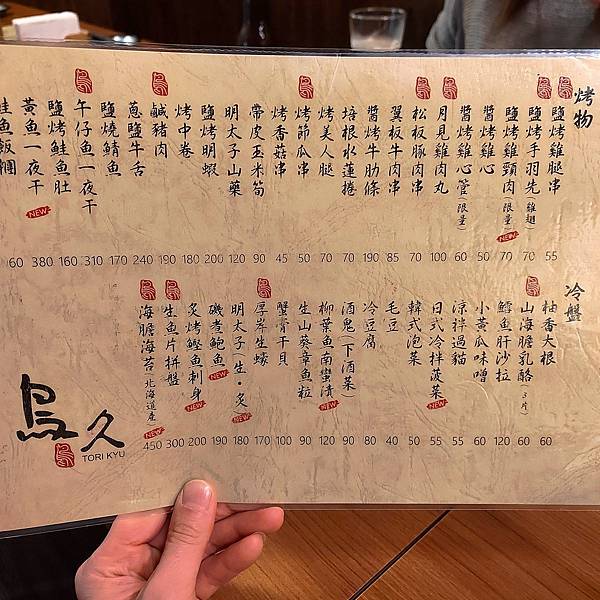 烤物
鹽烤雞腿串 55
鹽烤手羽先(雞翅) 70
鹽烤雞頸肉(限量) NEW 70
醬烤雞心 50
醬烤雞心管(限量) 60
月見雞肉丸 100
松板豚肉串 70
翼板牛肉串 85
醬烤牛肋條 190
培根水蓮捲 70
烤美人腿 70
烤節瓜串 50
烤香菇串 45
帶皮玉米筍 90
明太子山藥 120
鹽烤明蝦 200
烤中卷 180
鹹豬肉 190
蔥鹽牛舌 240
鹽燒鯖魚 170
午仔魚一夜干 310
鹽烤鮭魚肚 160
黃魚一夜干 NEW 380
鮭魚飯糰 60
冷盤
柚香大根 60
山海膽乳酪(3片) 60
鱈魚肝沙拉 120
小黃瓜味噌 60
涼拌過貓 55
日式冷拌菠菜 NEW 55
韓式泡菜 50
毛豆 40
冷豆腐 80
酒鬼(下酒菜) 90
柳葉魚南蠻漬 NEW 120
生山葵章魚粒 90
蟹膏干貝 100
厚岸生蠔 170
明太子(生・炙) NEW 180
磯煮鮑魚 NEW 190
炙烤鰹魚刺身 NEW 200
生魚片拼盤 300
海膽海苔(北海道產) NEW 450
鳥久
TORI KYU